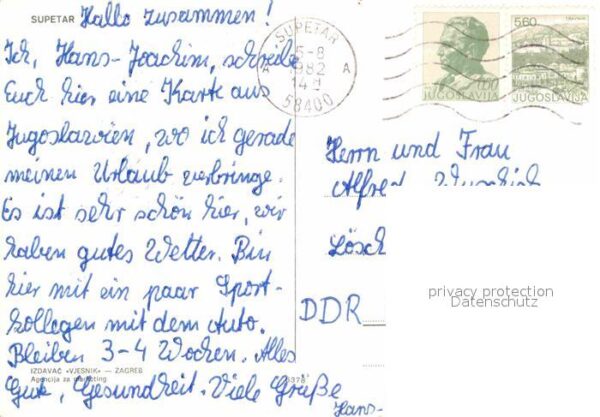 SUPETAR Hallo zusammen!
Ich, Hans-Joachim, schreibe
Euch hier eine Karte aus
Jugoslawien, wo ich gerade
meinen Urlaub verbringe.
Es ist sehr schön hier, wir
haben gutes Wetter. Bin
hier mit ein paar Sport-
kollegen mit dem Auto.
Bleiben 3-4 Wochen. Alles
IZDAVAČ «VJESNIK» — ZAGREB
Agencija za marketing
Gute, Gesundheit. Viele Grüße
Hans-
SUPETAR
5-8
1982
14
A A
58400
JUGOSLAVIJA
5,60
JUGOSLAVIJA
Herrn und Frau
Alfred
Lösch
DDR
privacy protection
Datenschutz